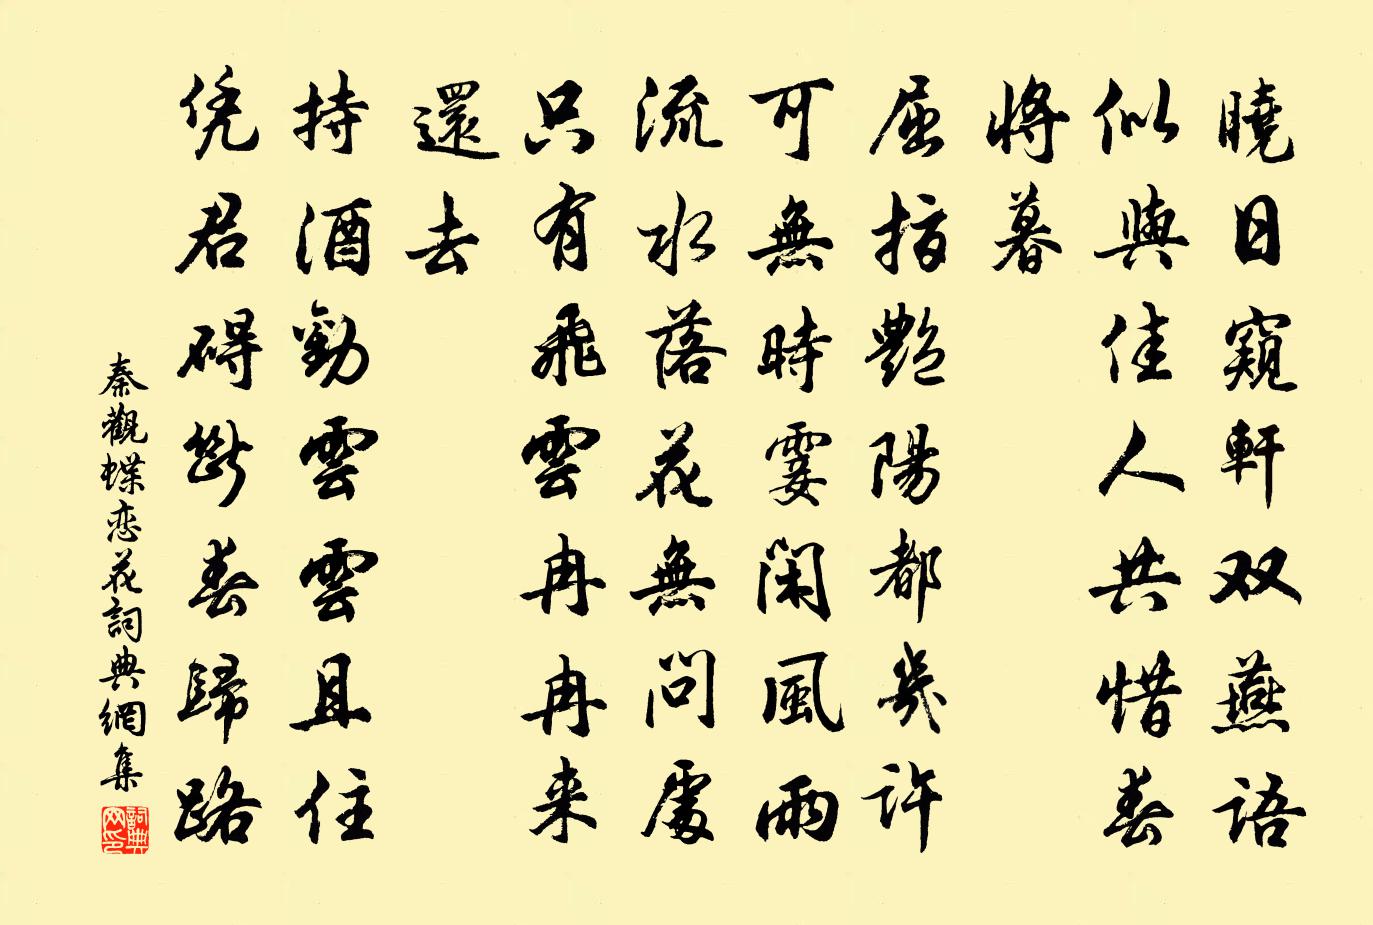 曉日窺軒双燕語
似與佳人共惜春
將暮
屈指艷陽都幾許
可無時霎閑風雨
流水落花無問處
只有飛雲冉冉来
還去
持酒勸雲雲且住
凭君碍斷春歸路
秦觀蝶恋花詞典網集
詞典
网印